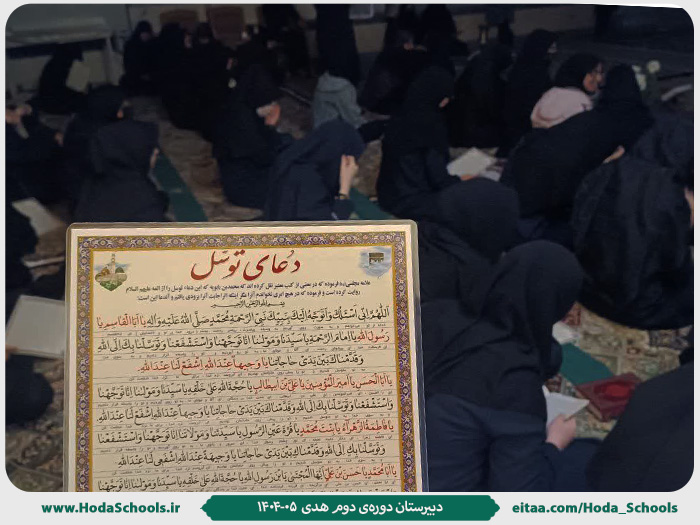 دعای توسّل
علامه مجلسی(ره) فرموده که در بعضی از کتب معتبر نقل کرده اند که محمدبن بابویه که این دعاء توسل را از ائمه علیهم السلام
روایت کرده است و فرموده که در هیچ امری نخواندم آنرا مگر اینکه اثر اجابت آنرا بزودی یافتم و آندعا این است:
بسم الله الرحمن الرحیم
اَللّهُمَّ اِنّی اَسْئَلُکَ وَاَتَوَجَّهُ اِلَیْکَ بِنَبِیِّکَ نَبِیِّ الرَّحْمَةِ مُحَمَّدٍ صَلَّی اللهُ عَلَیْهِ وَآلِهِ یا اَبَا الْقاسِمِ یا
رَسُولَ اللهِ یا اِمامَ الرَّحْمَةِ یا سَیِّدَنا وَمَوْلینا اِنّا تَوَجَّهْنا وَاسْتَشْفَعْنا وَتَوَسَّلْنا بِکَ اِلَی اللهِ
وَقَدَّمْناکَ بَیْنَ یَدَیْ حاجاتِنا یا وَجیهاً عِنْدَ اللهِ اِشْفَعْ لَنا عِنْدَ اللهِ.
یا اَبَا الْحَسَنِ یا اَمیرَ الْمُؤْمِنینَ یا عَلِیَّ بْنَ اَبیطالِبٍ یا حُجَّةَ اللهِ عَلی خَلْقِهِ یا سَیِّدَنا وَمَوْلینا اِنّا تَوَجَّهْنا
وَاسْتَشْفَعْنا وَتَوَسَّلْنا بِکَ اِلَی اللهِ وَقَدَّمْناکَ بَیْنَ یَدَیْ حاجاتِنا یا وَجیهاً عِنْدَ اللهِ اِشْفَعْ لَنا عِنْدَ اللهِ
یا فاطِمَةُ الزَّهْراءُ یا بِنْتَ مُحَمَّدٍ یا قُرَّةَ عَیْنِ الرَّسُولِ یا سَیِّدَتَنا وَمَوْلاتَنا اِنّا تَوَجَّهْنا وَاسْتَشْفَعْنا
وَتَوَسَّلْنا بِکِ اِلَی اللهِ وَقَدَّمْناکِ بَیْنَ یَدَیْ حاجاتِنا یا وَجیهَةً عِنْدَ اللهِ اِشْفَعی لَنا عِنْدَ اللهِ.
یا اَبا مُحَمَّدٍ یا حَسَنَ بْنَ عَلِیٍّ اَیُّهَا الْمُجْتَبی یَابْنَ رَسُولِ اللهِ یا حُجَّةَ اللهِ عَلی خَلْقِهِ یا سَیِّدَنا وَمَوْلینا
www.HodaSchools.ir
دبیرستان دوره‌ی دوم هدی ۰۵-۱۴۰۴
eitaa.com/Hoda_Schools